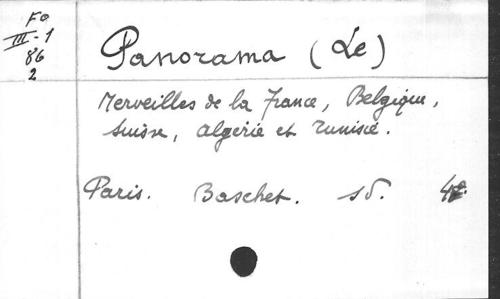 Fo
III-1
86
2
Panorama (Le)
Merveilles de la France, Belgique,
Suisse, Algérie et Tunisie.
Paris. Baschet. sd. 4°.